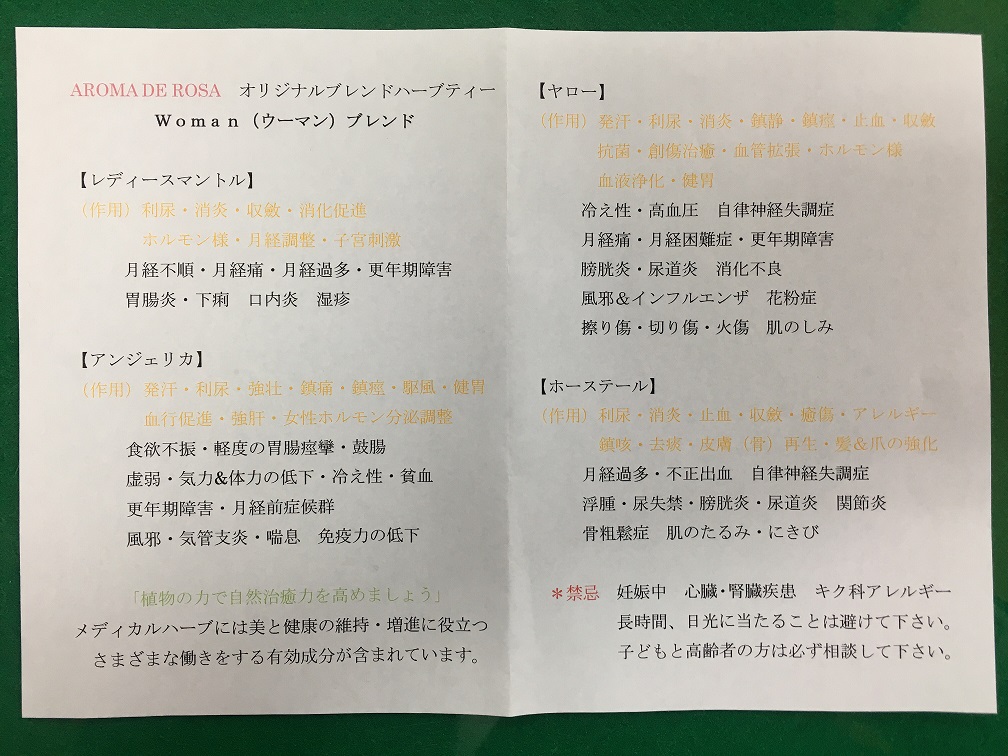 AROMA DE ROSA　オリジナルブレンドハーブティー
Ｗｏｍａｎ（ウーマン）ブレンド
【レディースマントル】
（作用）利尿・消炎・収斂・消化促進
ホルモン様・月経調整・子宮刺激
月経不順・月経痛・月経過多・更年期障害
胃腸炎・下痢　口内炎　湿疹
【アンジェリカ】
（作用）発汗・利尿・強壮・鎮痛・鎮痙・駆風・健胃
血行促進・強肝・女性ホルモン分泌調整
食欲不振・軽度の胃腸痙攣・鼓腸
虚弱・気力&体力の低下・冷え性・貧血
更年期障害・月経前症候群
風邪・気管支炎・喘息　免疫力の低下
「植物の力で自然治癒力を高めましょう」
メディカルハーブには美と健康の維持・増進に役立つ
さまざまな働きをする有効成分が含まれています。
【ヤロー】
（作用）発汗・利尿・消炎・鎮静・鎮痙・止血・収斂
抗菌・創傷治癒・血管拡張・ホルモン様
血液浄化・健胃
冷え性・高血圧　自律神経失調症
月経痛・月経困難症・更年期障害
膀胱炎・尿道炎　消化不良
風邪＆インフルエンザ　花粉症
擦り傷・切り傷・火傷　肌のしみ
【ホーステール】
（作用）利尿・消炎・止血・収斂・癒傷・アレルギー
鎮咳・去痰・皮膚（骨）再生・髪＆爪の強化
月経過多・不正出血　自律神経失調症
浮腫・尿失禁・膀胱炎・尿道炎　関節炎
骨粗鬆症　肌のたるみ・にきび
＊禁忌　妊娠中　心臓・腎臓疾患　キク科アレルギー
長時間、日光に当たることは避けて下さい。
子どもと高齢者の方は必ず相談して下さい。